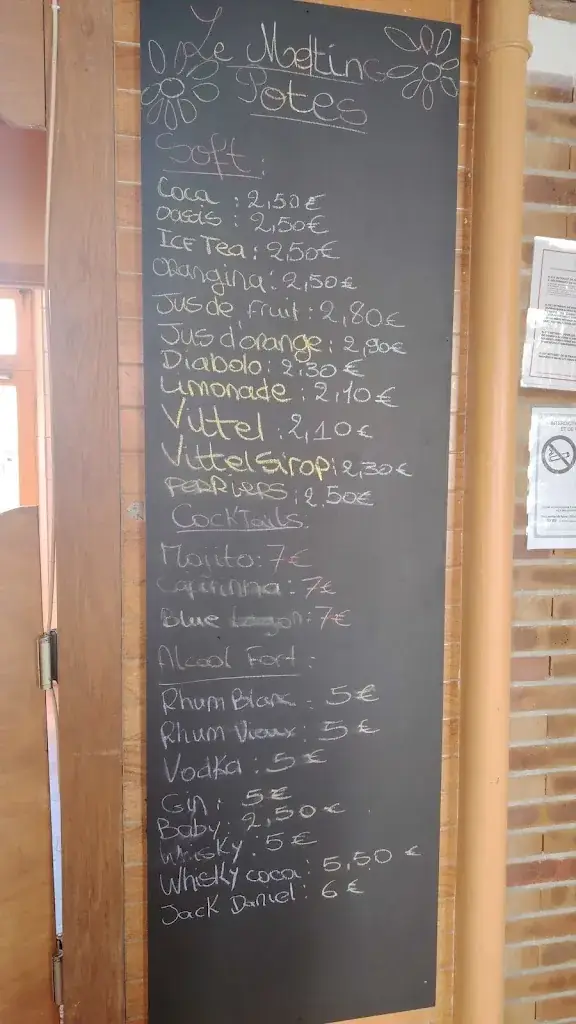 Le Melting
Potes
Soft :
Coca : 2,50€
Oasis : 2,50€
ICE Tea : 2,50€
Orangina : 2,50€
Jus de Fruit : 2,80€
Jus d'orange : 2,90€
Diabolo : 2,30€
Limonade : 2,10€
Vittel : 2,10€
Vittel Sirop : 2,30€
PERRIERS : 2,50€
Cocktails :
Mojito : 7€
Capirinha : 7€
Blue Lagon : 7€
Alcool Fort :
Rhum Blanc : 5€
Rhum Vieux : 5€
Vodka : 5€
Gin : 5€
Baby : 2,50€
Whisky : 5€
Whisky coca : 5,50€
Jack Daniel : 6€